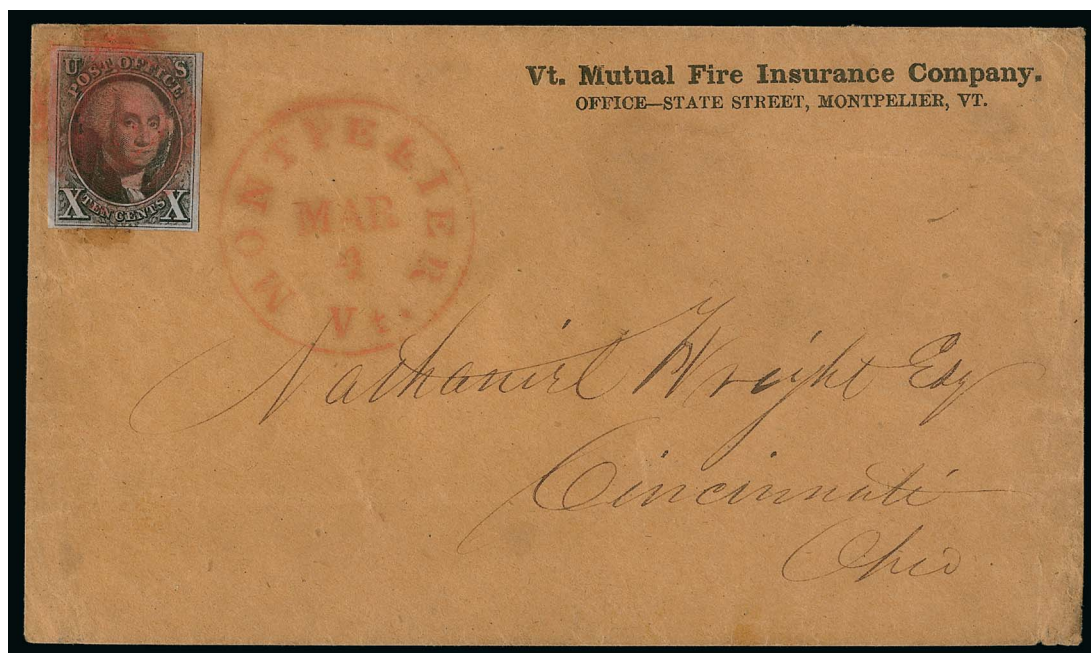 U S
POST OFFICE
X TEN CENTS X
Vt. Mutual Fire Insurance Company.
OFFICE—STATE STREET, MONTPELIER, VT.
MONTPELIER
MAR
Vt.
Nathaniel Wright Esq
Cincinnati
Ohio